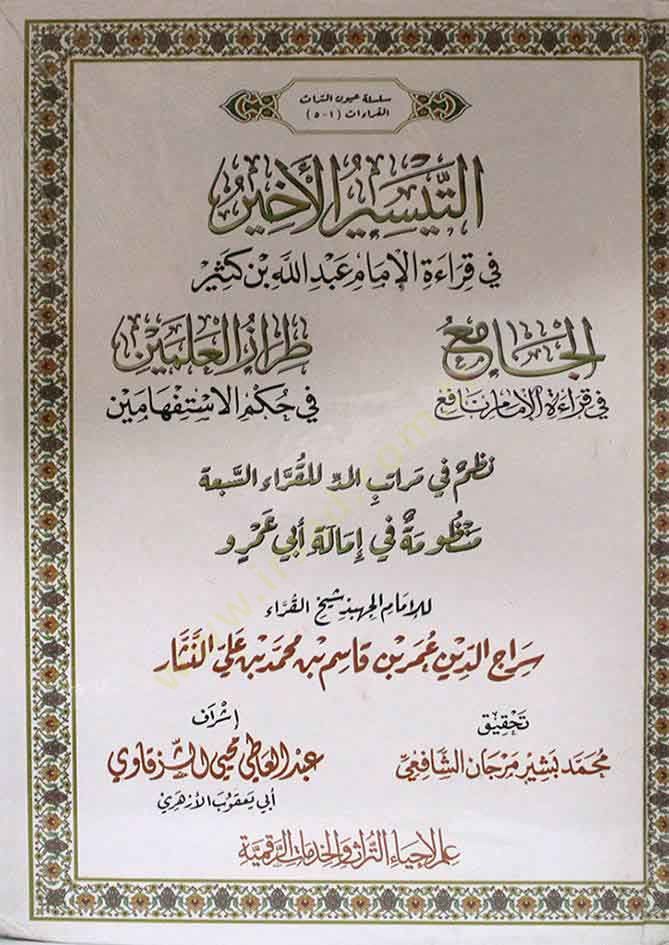 سلسلة عيون التراث
القراءات (١-٥)
التَّيْسِيرُ الأَخِيرُ
في قِرَاءَةِ الإِمَامِ عَبْدِ اللَّهِ بْنِ كَثِيْر
الجَامِعُ
في قِرَاءَةِ الإِمَامِ نَافِع
طِرَازُ العَلَمَيْنِ
في حُكْمِ الاسْتِفْهَامَيْنِ
نَظْمٌ في مَرَاتِبِ المَدِّ للقُرَّاءِ السَّبْعَةِ
مَنْظُومَةٌ في إِمَالَةِ أَبي عَمْرٍو
للإمَامِ الجِهْبِذِ شَيْخِ القُرَّاءِ
سِرَاجِ الدِّيْنِ عُمَرَ بْنِ قَاسِمِ بْنِ مُحَمَّدِ بْنِ عَلِيٍّ النَّشَّارِ
تَحْقِيق
مُحَمَّد بَشِيْر مَرْجَان الشَّافِعِيّ
إِشْرَاف
عَبْد العَاطِي مُحْيِي الشَّرْقَاوِي
أَبي يَعْقُوبَ الأَزْهَرِيّ
علم لإحياء التراث والخدمات الرقمية